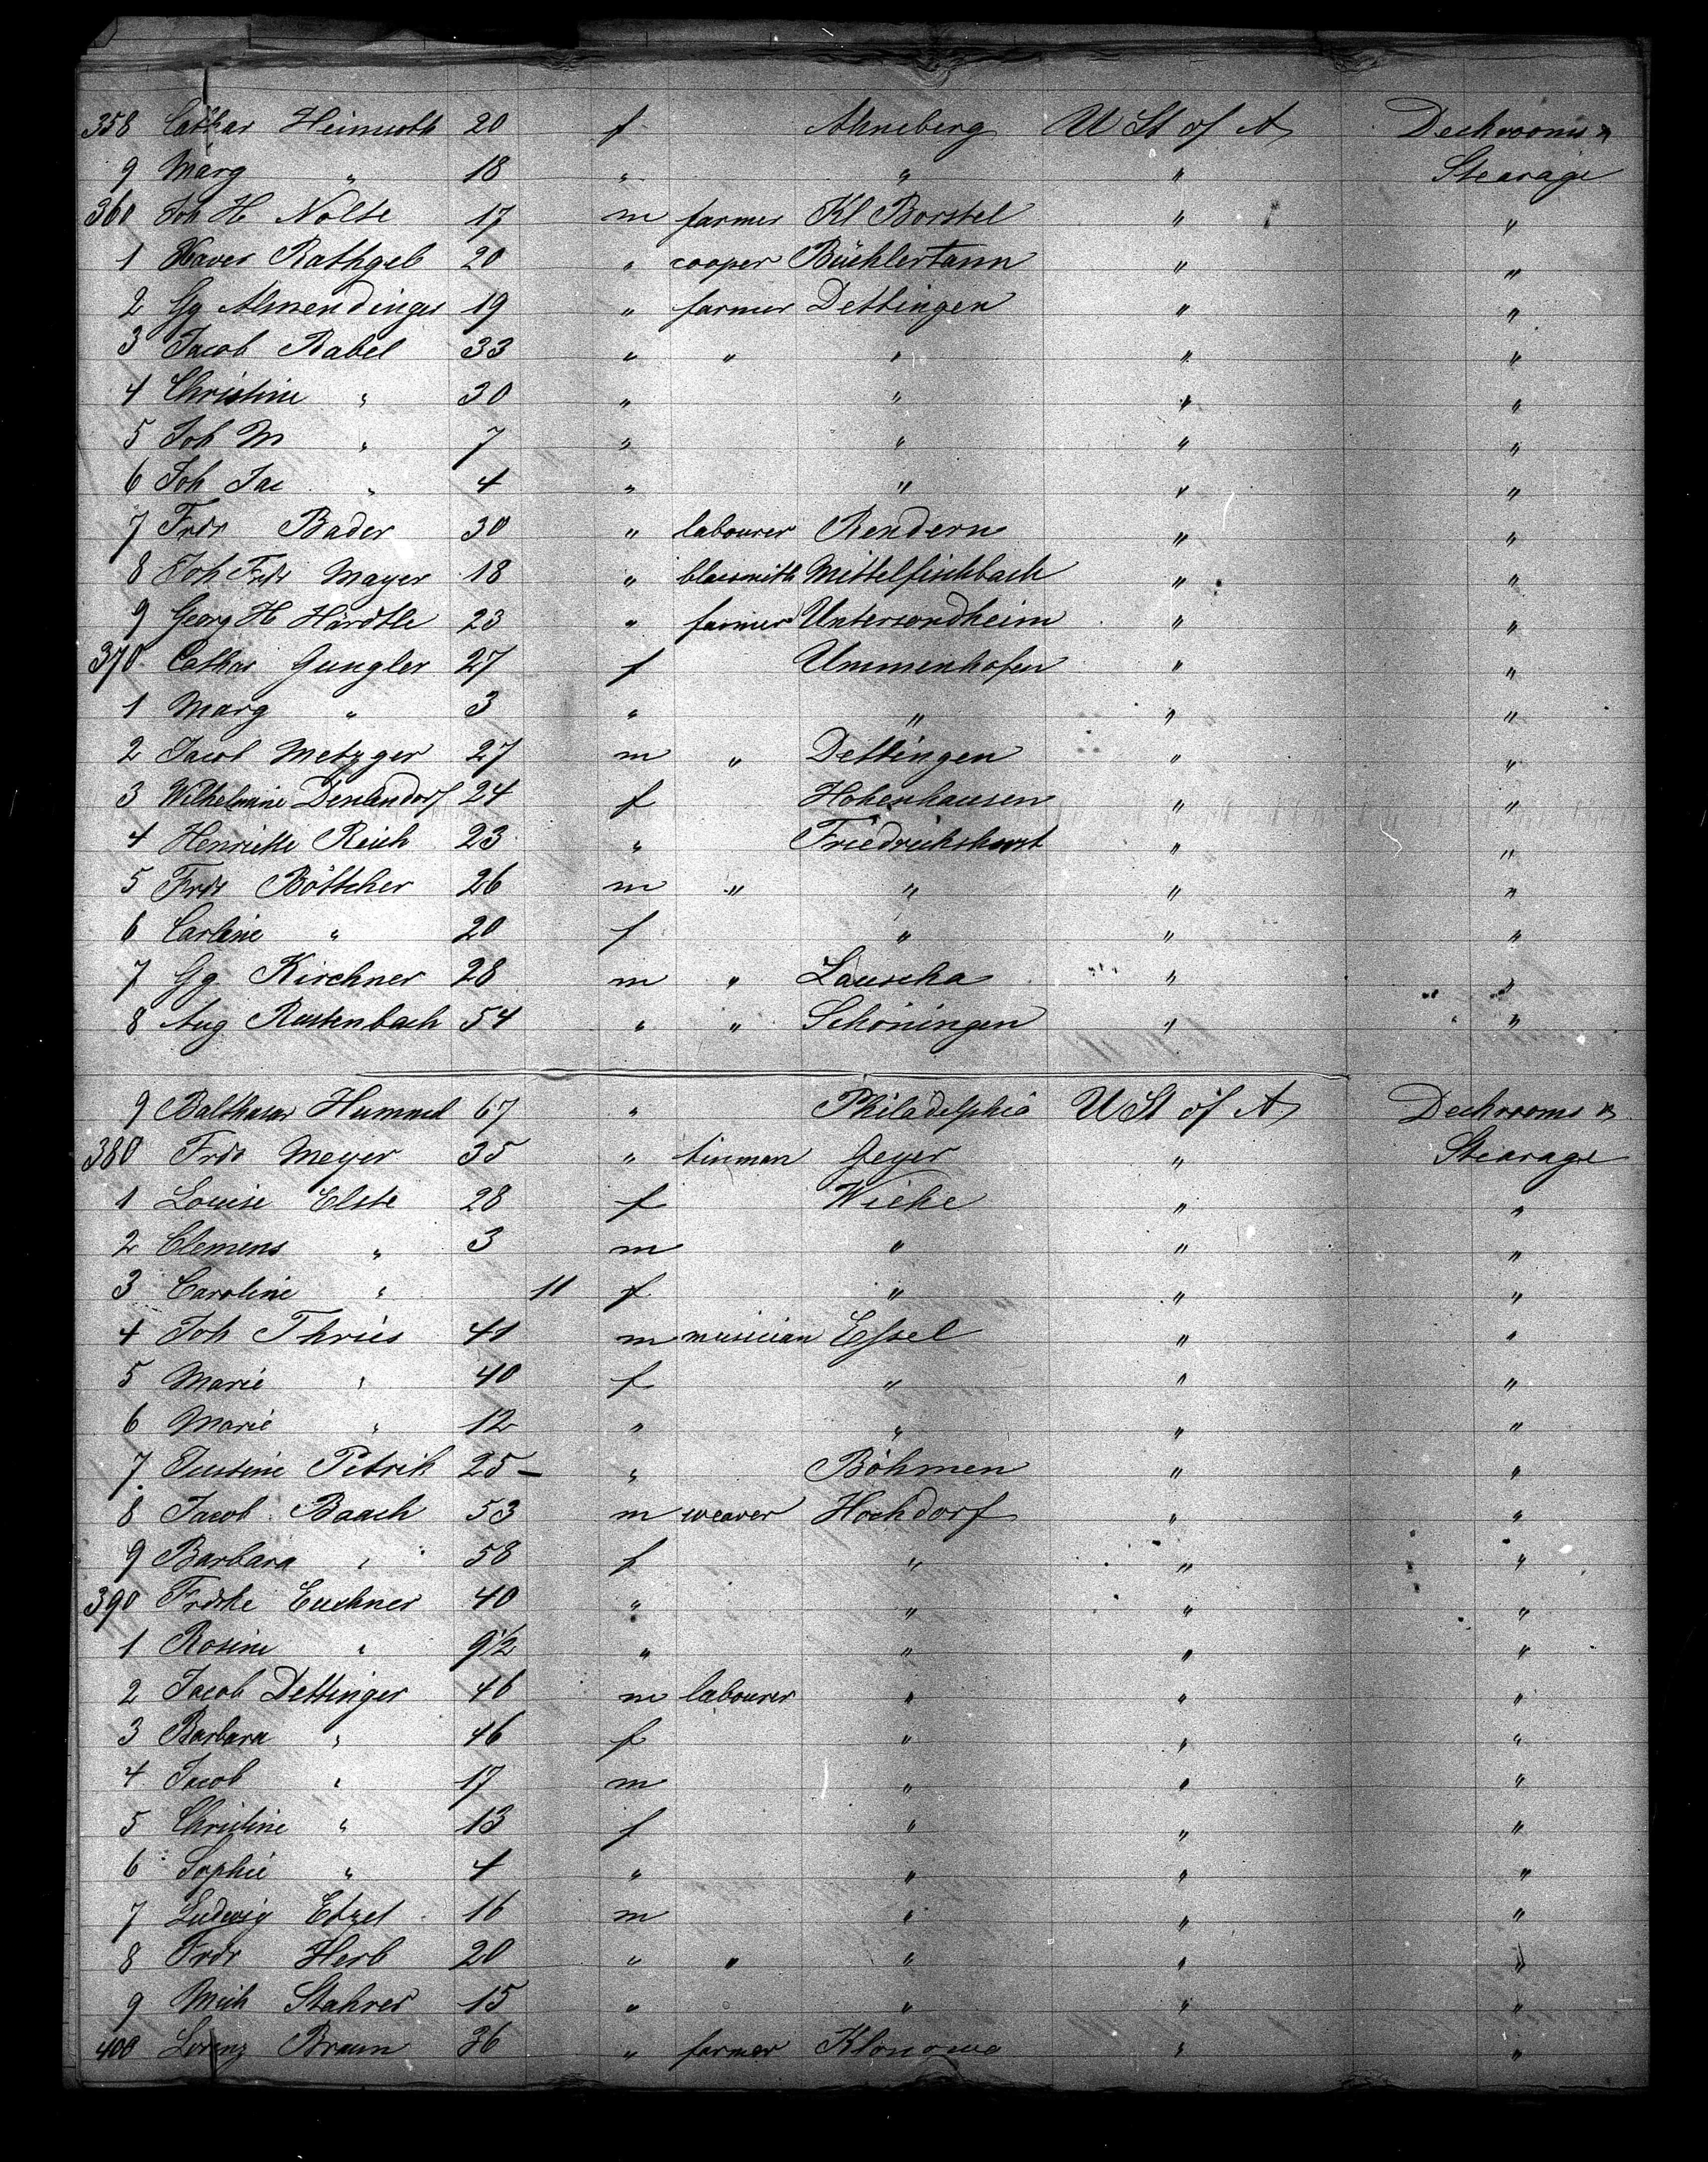 358 Cathar Heinsoth 20 f Ahneberg U St of A Deckrooms &
9 Marg " 18 " " " Stearage
360 Joh H Nolte 17 m farmer Kl Borstel " "
1 Xaver Rathgeb 20 " cooper Bühlertann " "
2 Gg Almendinger 19 " farmer Dettingen " "
3 Jacob Rabel 33 " " " " "
4 Christine " 30 " " " "
5 Joh M " 7 " " " "
6 Joh Jac " 4 " " " "
7 Frdr Bader 30 " labourer Rendern " "
8 Joh Frdr Mayer 18 " blacsmith Mittelfischbach " "
9 Georg H Härdtle 23 " farmer Untersondheim " "
370 Cathar Gungler 27 f Ummenhofen " "
1 Marg " 3 " " " "
2 Jacob Metzger 27 m " Dettingen " "
3 Wilhelmine 24 f Hohenhausen " "
4 Henriette Reich 23 " Friedrichshorst " "
5 Frdr Böttcher 26 m " " " "
6 Carline " 20 f " " "
7 Gg Kirchner 28 m " Lauscha " "
8 Aug Rustenbach 54 " " Schöningen " "
9 Balthasar Hummel 67 " Philadelphia U St of A Deckrooms &
380 Frdr Meyer 35 " tinman Geyer " Stearage
1 Louise Elste 28 f Wiehe " "
2 Clemens " 3 m " " "
3 Caroline " 11 f " " "
4 Joh Thries 41 m musician Essel " "
5 Marie " 40 f " " "
6 Marie " 12 " " " "
7 Justine Petrik 25 – " Böhmen " "
8 Jacob Baach 53 m weaver Hochdorf " "
9 Barbara " 58 f " " "
390 Frdrke Euchner 40 " " " "
1 Rosine " 9 1/2 " " " "
2 Jacob Dettinger 46 m labourer " " "
3 Barbara " 46 f " " "
4 Jacob " 17 m " " "
5 Christine " 13 f " " "
6 Sophie " 4 " " " "
7 Ludwig Etzel 16 m " " "
8 Frdr Herb 20 " " " " "
9 Mich Stahrer 15 " " " "
400 Lorenz Braun 36 " farmer Klonowo " "